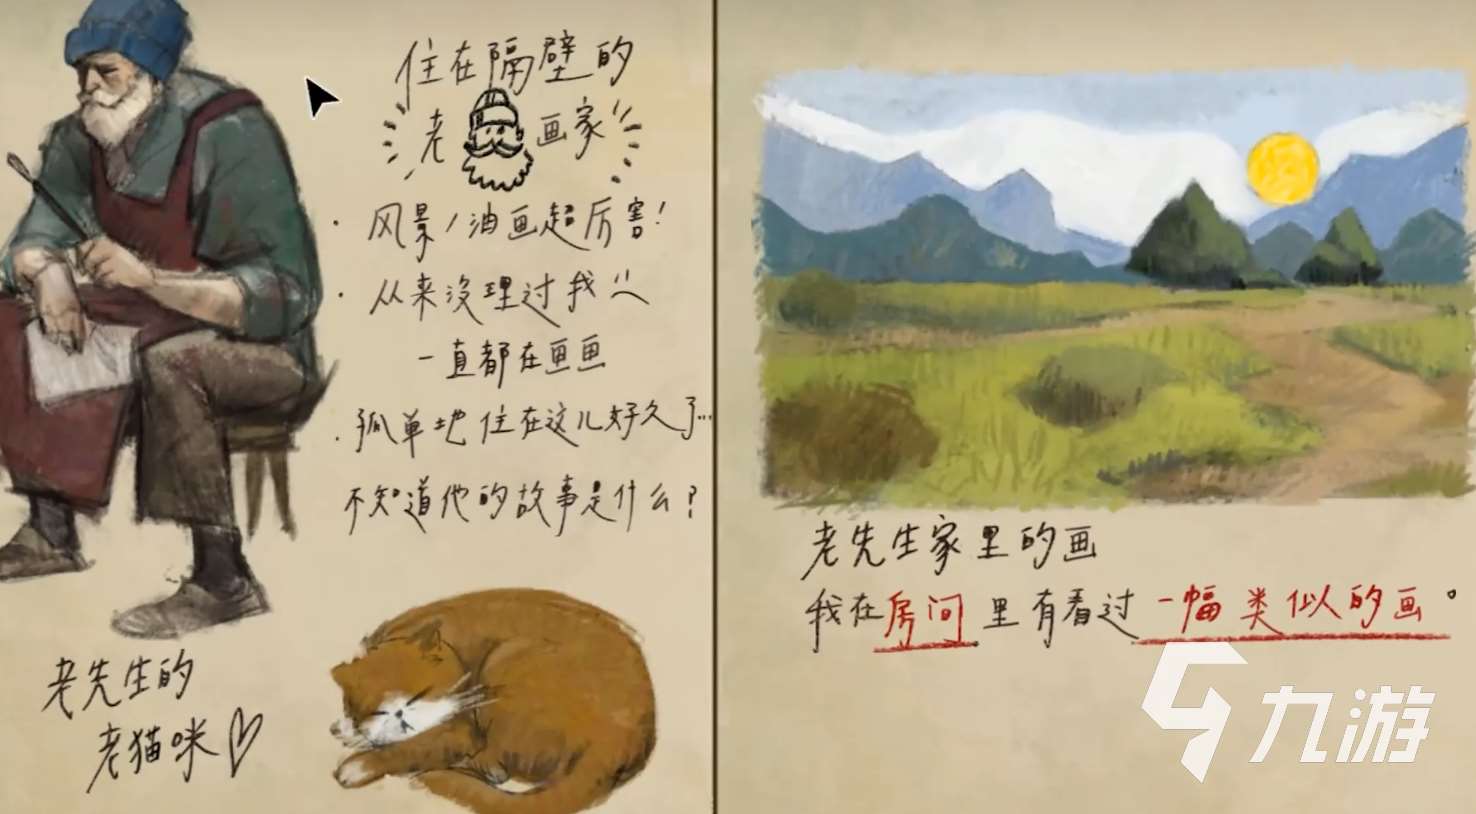 住在隔壁的
老画家
· 风景/油画超厉害!
· 从来没理过我
一直都在画画
· 孤单地住在这儿好久了…
不知道他的故事是什么?
老先生的
老猫咪♡
老先生家里的画
我在房间里有看过一幅类似的画。
九游